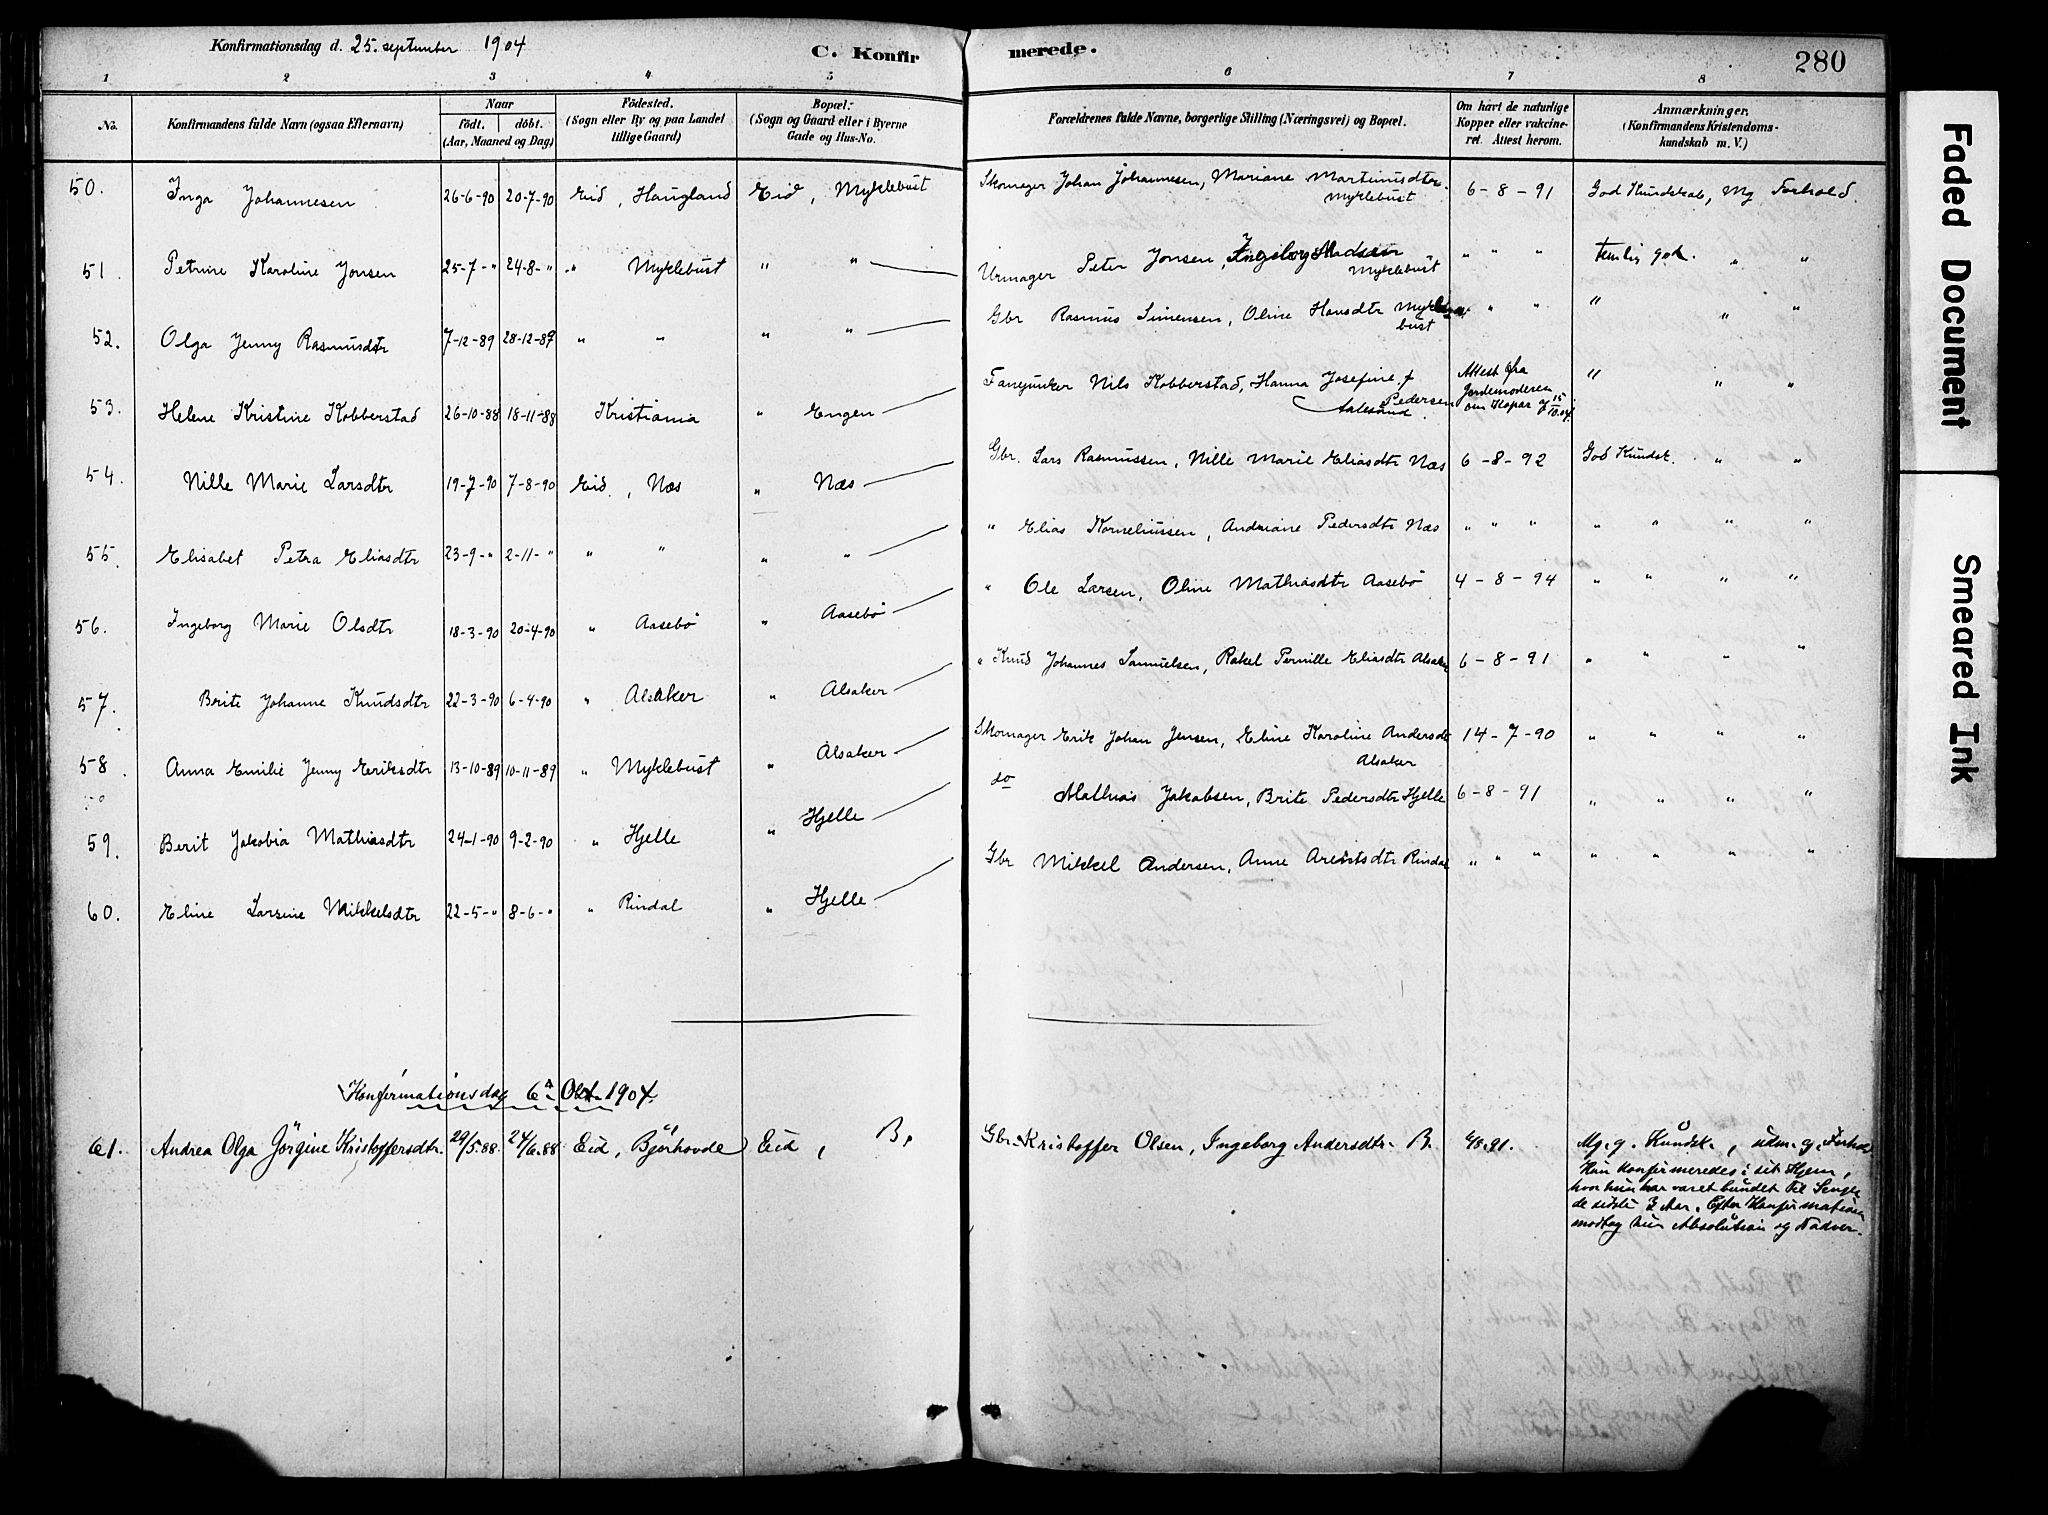 Konfirmationsdag d. 25. september 1904
C. Konfirmerede.
280
1 2 3 4 5 6 7 8
No.
Konfirmandens fulde Navn (ogsaa Efternavn)
Naar
födt. döbt.
(Aar, Maaned og Dag)
Födested.
(Sogn eller By og paa Landet
tillige Gaard)
Bopæl.
(Sogn og Gaard eller i Byerne
Gade og Hus-No.
Forældrenes fulde Navne, borgerlige Stilling (Næringsvei) og Bopæl.
Om havt de naturlige
Kopper eller vakcine-
ret. Attest herom.
Anmærkninger.
(Konfirmandens Kristendoms-
kundskab m. V.)
50. Inga Johannesen 26-6-90 20-7-90 Eid, Haugland Eid, Myklebust Skomager Johan Johannesen, Mariane Martinusdtr. Myklebust 6-8-91 God Kundskab, Mg Forhold.
51. Petrine Karoline Jonsen 25-7-" 24-8-" " Myklebust " " Urmager Peter Jonsen, Ingeborg Madsen Myklebust " " " temlig god. " "
52. Olga Jenny Rasmusdtr 7-12-89 28-12-89 " " " " Gbr Rasmus Simensen, Oline Hansdtr Myklebust " " " " " "
53. Helene Kristine Kobberstad 26-10-88 18-11-88 Kristiania " Engen Fanejunker Nils Kobberstad, Hanna Josefine f Pedersen Aalesund. Attest fra Jordemoderen om Kopar af 15/10.04. " " "
54. Nille Marie Larsdtr 19-7-90 7-8-90 Eid, Næs " Næs Gbr. Lars Rasmussen, Nille Marie Eliasdtr Næs 6-8-92 God Kundsk. " "
55. Elisabet Petra Eliasdtr 23-9-" 2-11-" " " " " " Elias Korneliussen, Andriane Pedersdtr Næs " " " " " " "
56. Ingeborg Marie Olsdtr 18-3-90 20-4-90 " Aasebö " Aasebö " Ole Larsen, Oline Mathiasdtr Aasebö 4-8-94 " " " "
57. Brite Johanne Knudsdtr 22-3-90 6-4-90 " Alsaker " Alsaker " Knud Johannes Samuelsen, Rakel Pernille Eliasdtr Alsaker 6-8-91 " " " "
58. Anna Emilie Jenny Eriksdtr 13-10-89 10-11-89 " Myklebust " Alsaker Skomager Erik Johan Jensen, Eline Karoline Andersdt Alsaker 14-7-90 " " " "
59. Berit Jakobia Mathiasdtr 24-1-90 9-2-90 " Hjelle " Hjelle do Mathias Jakobsen, Brite Pedersdtr Hjelle 6-8-91 " " " "
60. Eline Larsine Mikkelsdtr 22-5-" 8-6-" " Rindal " Hjelle Gbr Mikkel Andersen, Anne Arentsdtr Rindal " " " " " " "
Konfirmationsdag 6 Okt. 1904.
61. Andrea Olga Görgine Kristoffersdtr. 29/5.88 24/6.88 Eid, Björhovde Eid, B. Gbr. Kristoffer Olsen, Ingeborg Andersdtr. B. 4/8.91. Mg. g. Kundsk., udm. g. Forhold
Hun konfirmeredes i sit Hjem,
hvor hun har været bundet til Sengen
de sidste 3 Aar. Efter Konfirmationen
modtog hun Absolution og Nadver.
Faded Document
Smeared Ink